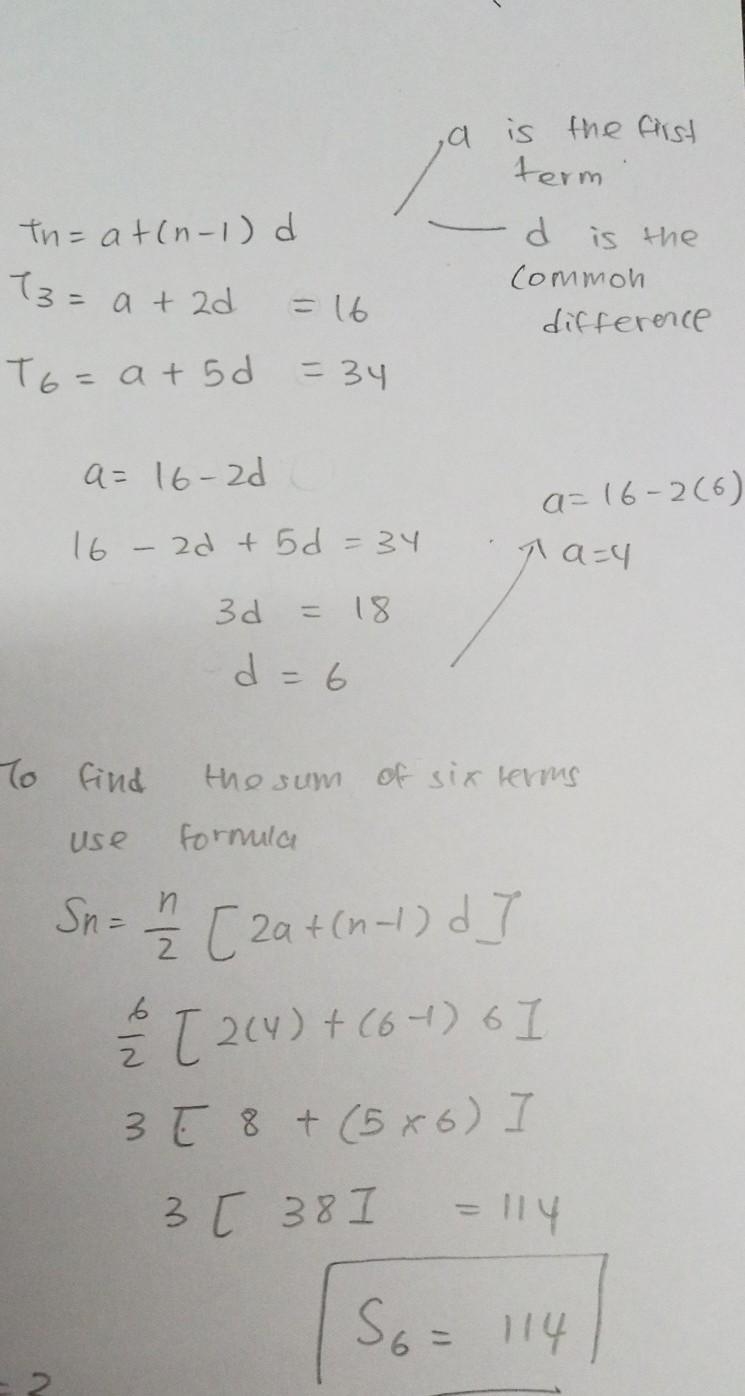 a is the first
term
tn = a + (n-1) d
d is the
common
difference
T3 = a + 2d = 16
T6 = a + 5d = 34
a = 16 - 2d
a = 16 - 2(6)
16 - 2d + 5d = 34
a = 4
3d = 18
d = 6
To find the sum of six terms
use formula
Sn = n/2 [2a + (n-1) d]
6/2 [2(4) + (6-1) 6]
3 [8 + (5 x 6)]
3 [38] = 114
S6 = 114